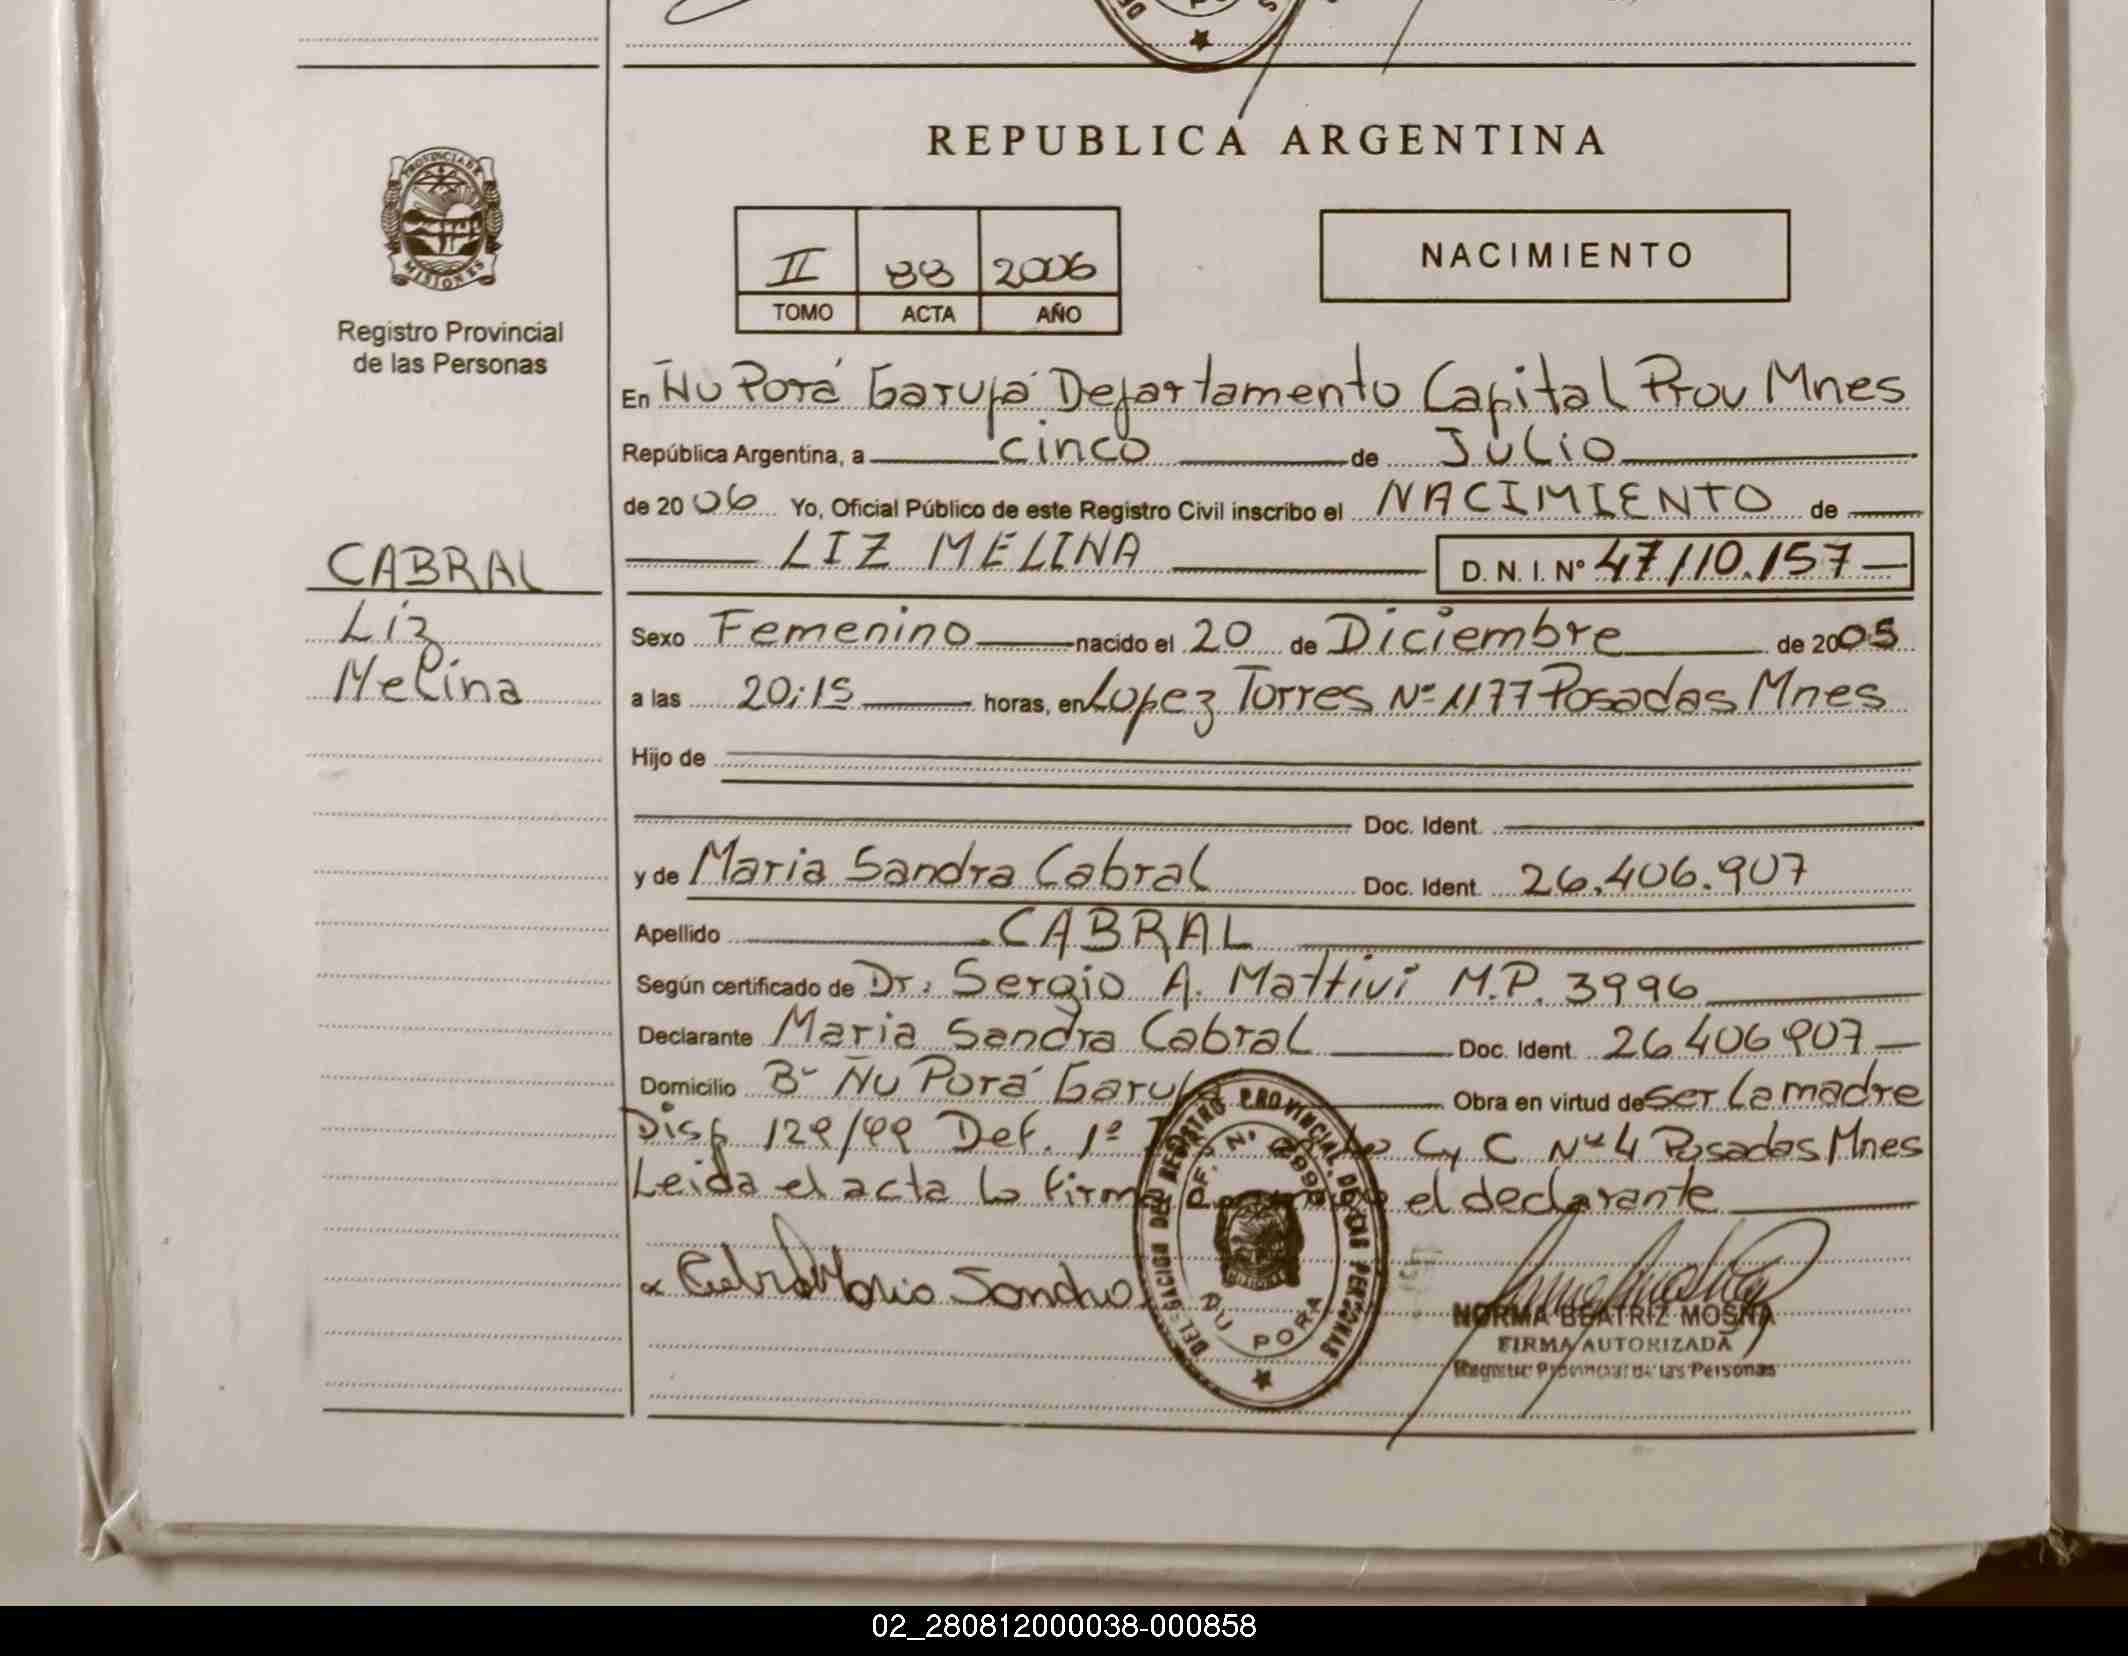 REPUBLICA ARGENTINA
PROVINCIA DE
MISIONES
Registro Provincial
de las Personas
II 88 2006
TOMO ACTA AÑO
NACIMIENTO
En Ñu Porá Garupá Departamento Capital Prov Mnes
República Argentina, a cinco de Julio
de 2006 Yo, Oficial Público de este Registro Civil inscribo el NACIMIENTO de
LIZ MELINA D. N. I. Nº 47110.157
CABRAL
Liz
Melina
Sexo Femenino nacido el 20 de Diciembre de 2005
a las 20:15 horas, en Lopez Torres Nº 1177 Posadas Mnes
Hijo de
Doc. Ident.
y de Maria Sandra Cabral Doc. Ident. 26.406.907
Apellido CABRAL
Según certificado de Dr. Sergio A. Mattivi M.P. 3996
Declarante Maria Sandra Cabral Doc. Ident. 26406907
Domicilio Bº Ñu Porá Garupá Obra en virtud de ser la madre
Disp 129/99 Def. 1º C y C Nº 4 Posadas Mnes
Leida el acta la firma el declarante
Cabral Maria Sandra
DELEGACION DEL REGISTRO PROVINCIAL DE LAS PERSONAS
ÑU PORA
NORMA BEATRIZ MOSNA
FIRMA AUTORIZADA
Registro Provincial de las Personas
02_280812000038-000858